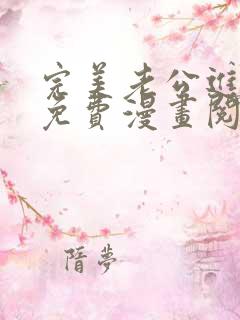 完美老公進
免費漫畫閱
隋夢